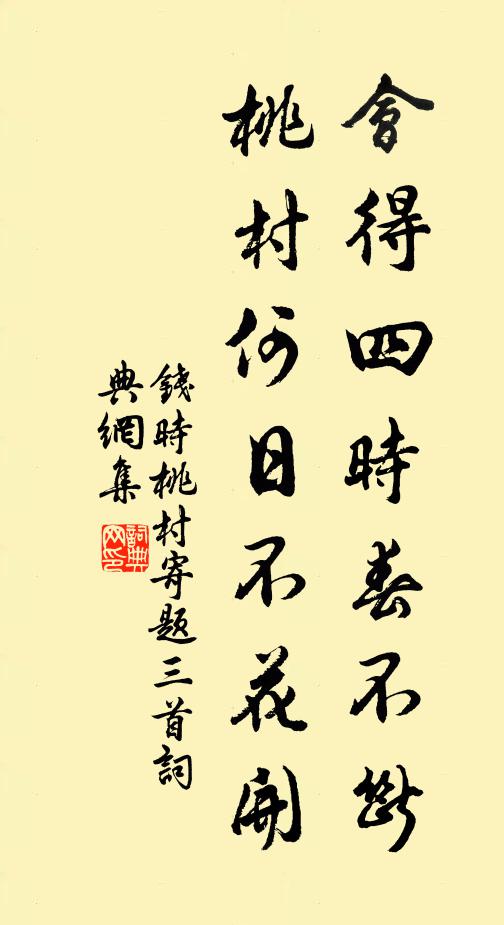 會得四時春不斷
桃村何日不花開
錢時桃村寄題三首詞
典網集
詞典
网印